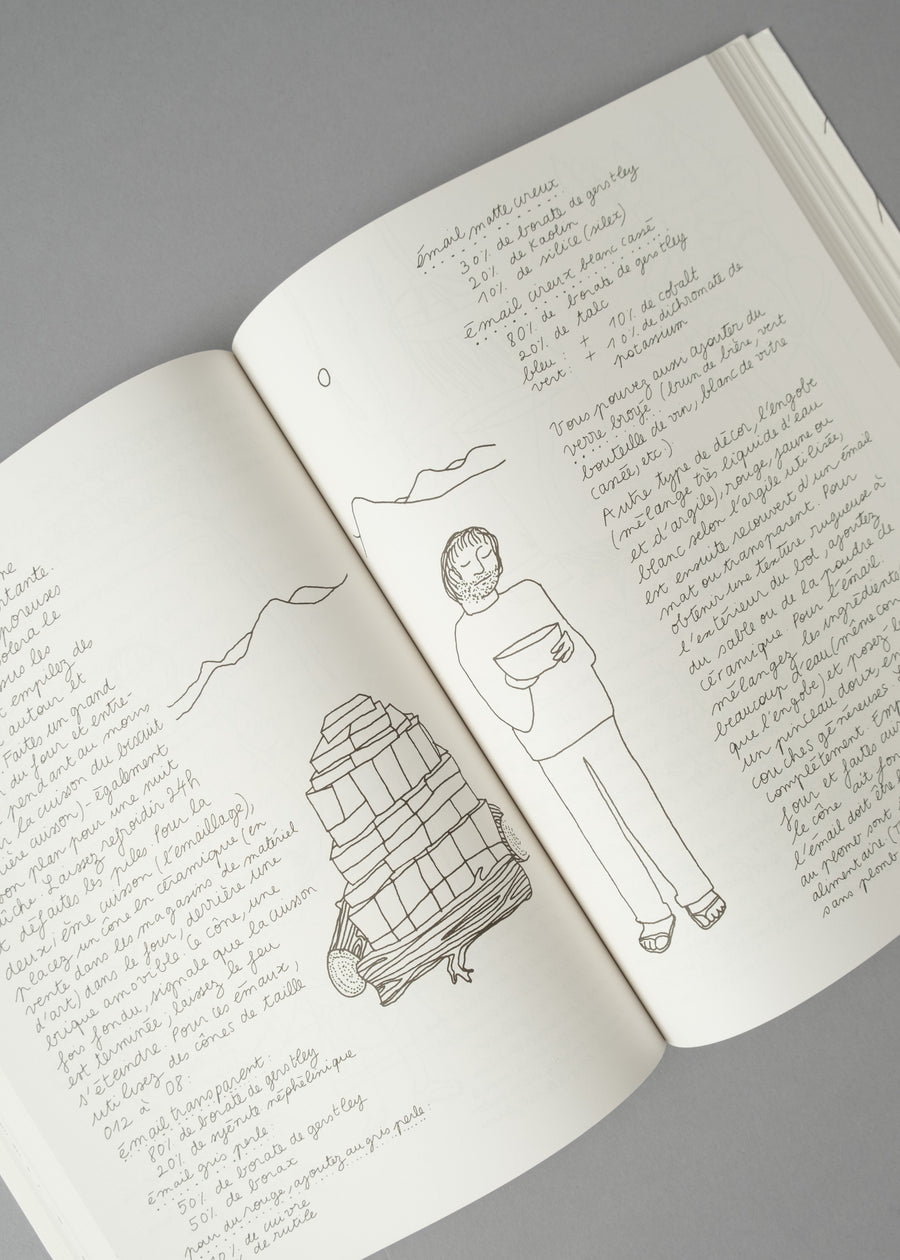 ne
ntante.
poreuses
solera le
sus les
t empilez des
autour et
Faites un grand
du four et entre-
pendant au moins
la cuisson du biscuit
ière cuisson) - également
bon plan pour une nuit
aîche. Laissez refroidir 24h
t défaites les piles. Pour la
deuxième cuisson (l'émaillage),
placez un cône en céramique (en
vente dans les magasins de matériel
d'art) dans le four, derrière une
brique amovible. Ce cône, une
fois fondu, signale que la cuisson
est terminée ; laissez le feu
s'éteindre. Pour ces émaux,
utilisez des cônes de taille
012 à 08 :
émail transparent :
80% de borate de gerstley
20% de syénite néphélinique
émail gris perle :
50% de borate de gerstley
50% de borax
pour du rouge, ajoutez au gris perle :
10% de cuivre
de rutile
émail matte cireux :
30% de borate de gerstley
20% de Kaolin
10% de silice (silex)
émail cireux blanc cassé
80% de borate de gerstley
20% de talc
bleu : + 10% de cobalt
vert : + 10% de dichromate de
potassium
Vous pouvez aussi ajouter du
verre broyé (brun de bière, vert
bouteille de vin, blanc de vitre
cassée, etc.).
Autre type de décor, l'engobe
(mélange très liquide d'eau
et d'argile), rouge, jaune ou
blanc selon l'argile utilisée,
est ensuite recouvert d'un émail
mat ou transparent. Pour
obtenir une texture rugueuse à
l'extérieur du bol, ajoutez
du sable ou de la poudre de
céramique. Pour l'émail:
mélangez les ingrédients
beaucoup d'eau (même con
que l'engobe) et posez-le
un pinceau doux, en
couches généreuses.
complètement. Emp
four et faites cui
le cône ait fon
l'émail doit être
au plomb sont
alimentaire (T
sans plomb